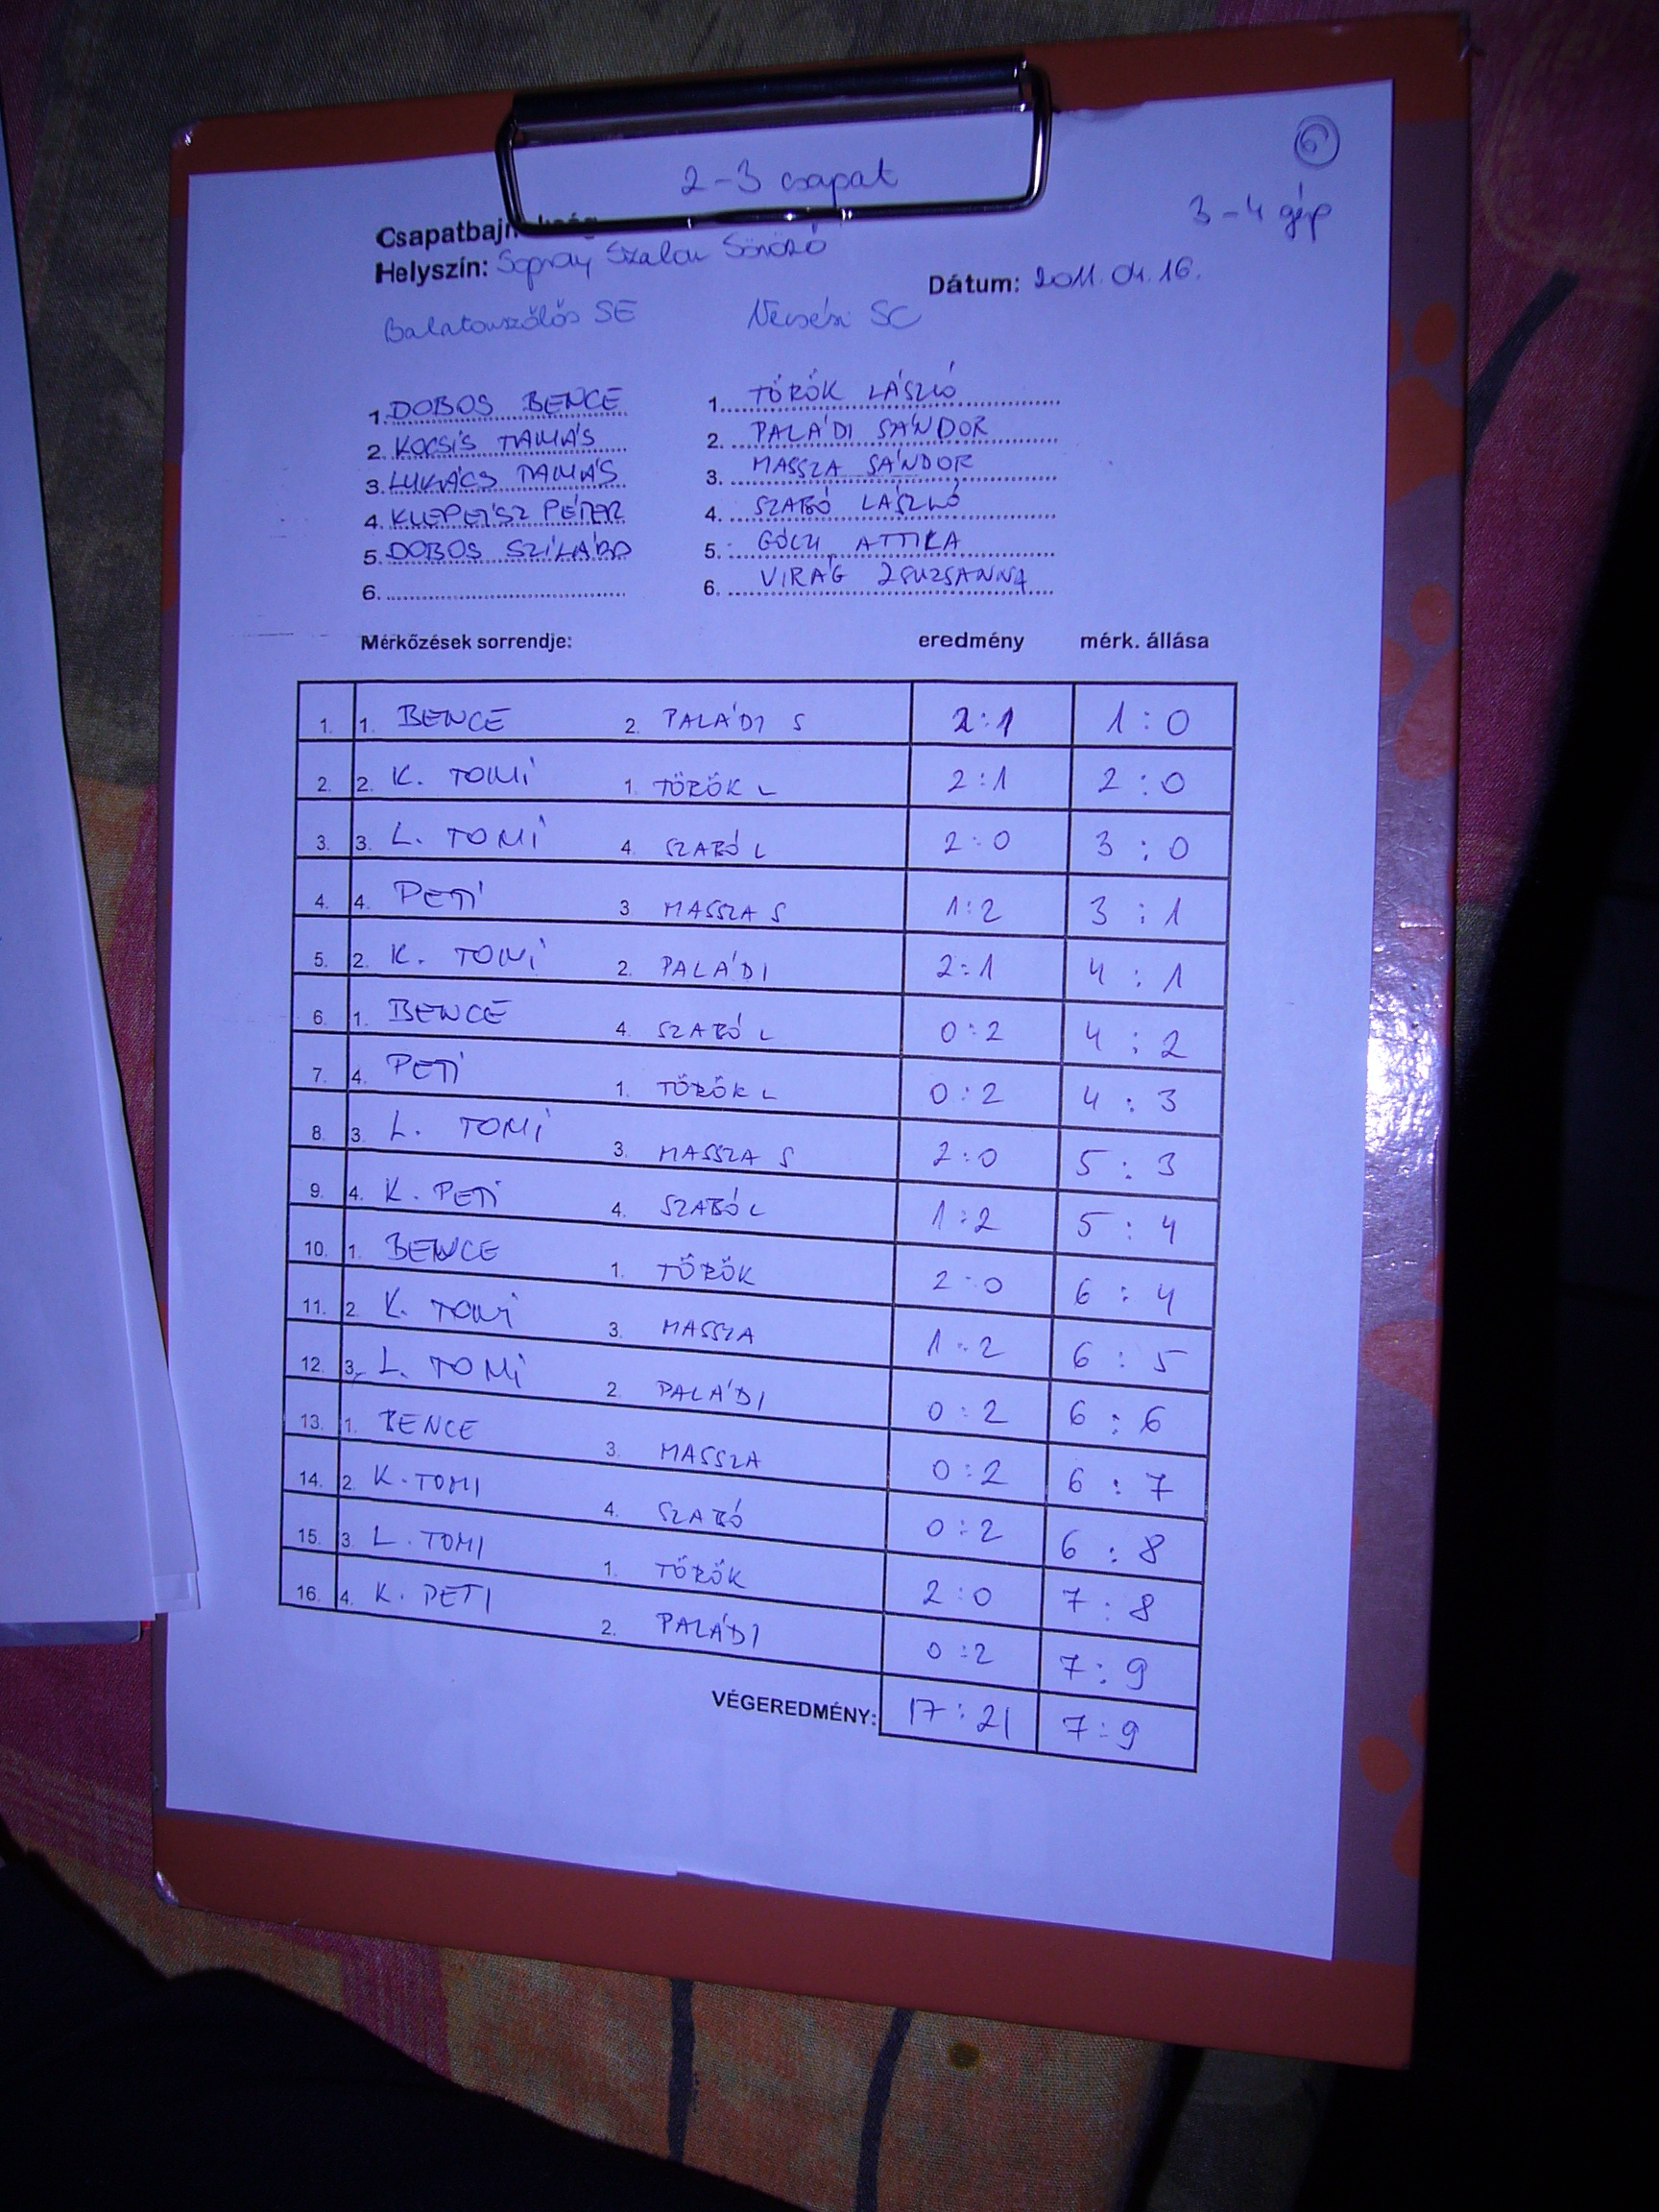 6
2-3 csapat
3-4 gép
Helyszín: Szalai Söröző
Dátum: 2011.04.16.
Balatonszőlős SE Vecsési SC
1. DOBOS BENCE 1. TÖRÖK LÁSZLÓ
2. KOCSIS TAMÁS 2. PALÁDI SÁNDOR
3. LUKÁCS TAMÁS 3. MASSZA SÁNDOR
4. KLEPEISZ PÉTER 4. SZABÓ LÁSZLÓ
5. DOBOS SZILÁRD 5. ATTILA
6. 6. VIRÁG ZSUZSANNA
Mérkőzések sorrendje: eredmény mérk. állása
1. 1. BENCE 2. PALÁDI S 2:1 1:0
2. 2. K. TOMI 1. TÖRÖK L 2:1 2:0
3. 3. L. TOMI 4. SZABÓ L 2:0 3:0
4. 4. PETI 3 MASSZA S 1:2 3:1
5. 2. K. TOMI 2. PALÁDI 2:1 4:1
6. 1. BENCE 4. SZABÓ L 0:2 4:2
7. 4. PETI 1. TÖRÖK L 0:2 4:3
8. 3. L. TOMI 3. MASSZA S 2:0 5:3
9. 4. K. PETI 4. SZABÓ L 1:2 5:4
10. 1. BENCE 1. TÖRÖK 2:0 6:4
11. 2. K. TOMI 3. MASSZA 1:2 6:5
12. 3. L. TOMI 2. PALÁDI 0:2 6:6
13. 1. BENCE 3. MASSZA 0:2 6:7
14. 2. K. TOMI 4. SZABÓ 0:2 6:8
15. 3. L. TOMI 1. TÖRÖK 2:0 7:8
16. 4. K. PETI 2. PALÁDI 0:2 7:9
VÉGEREDMÉNY: 17:21 7:9